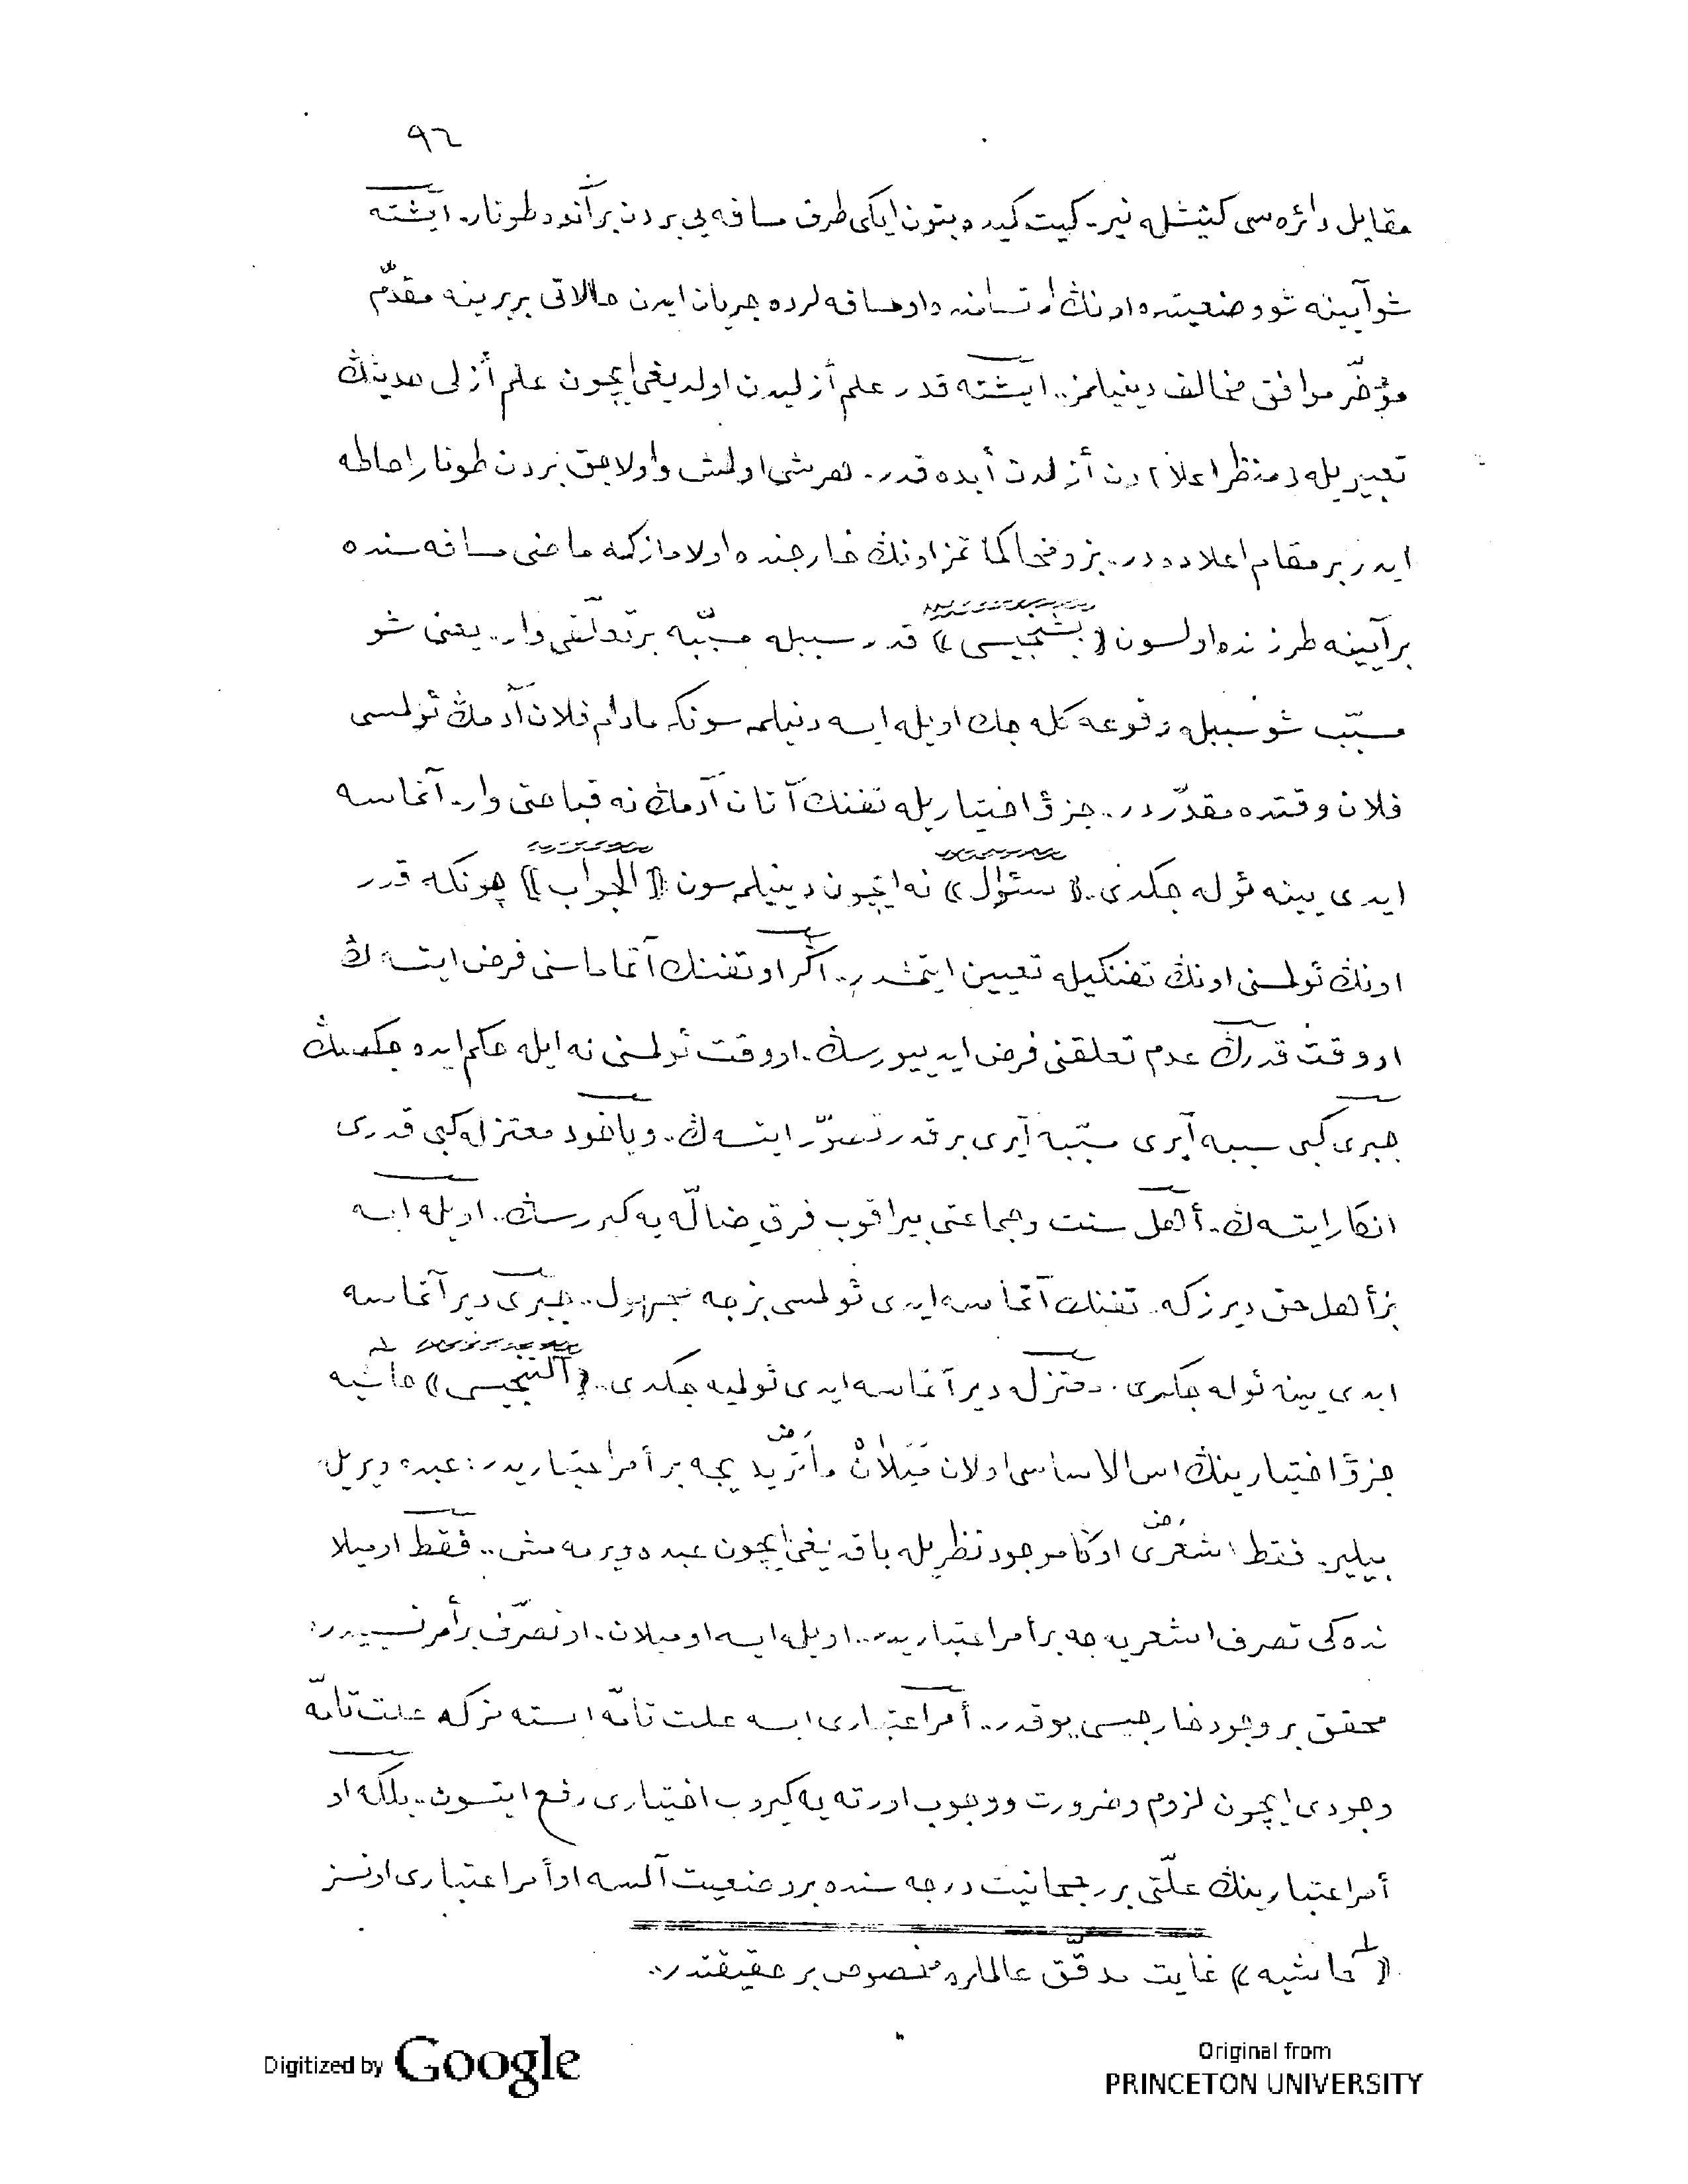 ٩٦
مقابل دائره‌سى كنيشله نير. كيت كيده بتون ايكى طرف مسافه‌يى بردن برآنده طوتار. ايشته
شو آيينه شو وضعيتده اونڭ ارتسامنده او مسافه‌لرده جريان ايدن حالاتى بربرينه مقدّم
مؤخّر موافق مخالف دينيلمز.. ايشته قدر علم أزليدن اولديغى ايچون علم أزلى حديثڭ
تعبيريله (منظر اعلا) دن أزلدن أبده قدر. هر شى اولمش واولاجق بردن طوتار احاطه
ايدر بر مقام اعلاده‌در. بز ومحاكماتمز اونڭ خارجنده اولاماز كه ماضى مسافه‌سنده
بر آيينه طرزنده اولسون ((بشنجيسى)) قدر سببله مسبّبه بر تعلّقى وار.. يعنى شو
مسبّب شو سببله وقوعه كله‌جك اويله ايسه دنيلمه‌سونكه مادام فلان آدمڭ ئولمسى
فلان وقتده مقدّردر.. جزؤ اختياريله تفنك آتان آدمڭ نه قباحتى وار. آتماسه
ايدى يينه ئوله‌جكدى.. ((سئوال)) نه ايچون دينيلمه‌سون ((الجواب)) چونكه قدر
اونڭ ئولمسنى اونڭ تفنكيله تعيين ايتمشدر.. اگر او تفنك آتماماسنى فرض ايتسه‌ڭ
او وقت قدرڭ عدم تعلقنى فرض ايدييورسڭ. او وقت ئولمسنى نه ايله حكم ايده‌جكسڭ
جبرى كبى سببه آيرى مسبّبه آيرى بر قدر تصوّر ايتسه‌ڭ. وياخود معتزله كبى قدرى
انكار ايتسه‌ڭ. أهل سنت وجماعتى بيراقوب فرق ضالّه‌يه كيررسڭ.. اويله ايسه
بز أهل حق ديرز كه. تفنك آتماسه ايدى ئولمسى بزجه مجهول.. جبرى دير آتماسه
ايدى يينه ئوله‌جكدى. معتزله دير آتماسه ايدى ئولميه‌جكدى.. ((آلتنجيسى)) حاشيه ١
جزؤ اختيارينڭ اس الاساسى اولان مَيَلَانْ ماتريديجه بر أمر اعتباريدر: عبده ويريله
بيلير. فقط اشعرى اوڭا موجود نظريله باقديغى ايچون عبده ويرمه‌مش.. فقط او ميلا
نده‌كى تصرف اشعريه‌جه بر أمر اعتباريدر.. اويله ايسه او ميلان. او تصرّف بر أمر نسبيدر:
محقق بر وجود خارجيسى يوقدر.. أمر اعتبارى ايسه علت تامّه ايسته‌مز كه علت تامّه
وجودى ايچون لزوم وضرورت ووجوب اورته‌يه كيروب اختيارى رفع ايتسون.. بلكه او
أمر اعتبارينڭ علّتى بر رجحانيت درجه‌سنده بر وضعيت آلسه او أمر اعتبارى اونسز
((حاشيه ١)) غايت مدقّق عالملره مخصوص بر حقيقتدر..
Digitized by Google
Original from
PRINCETON UNIVERSITY